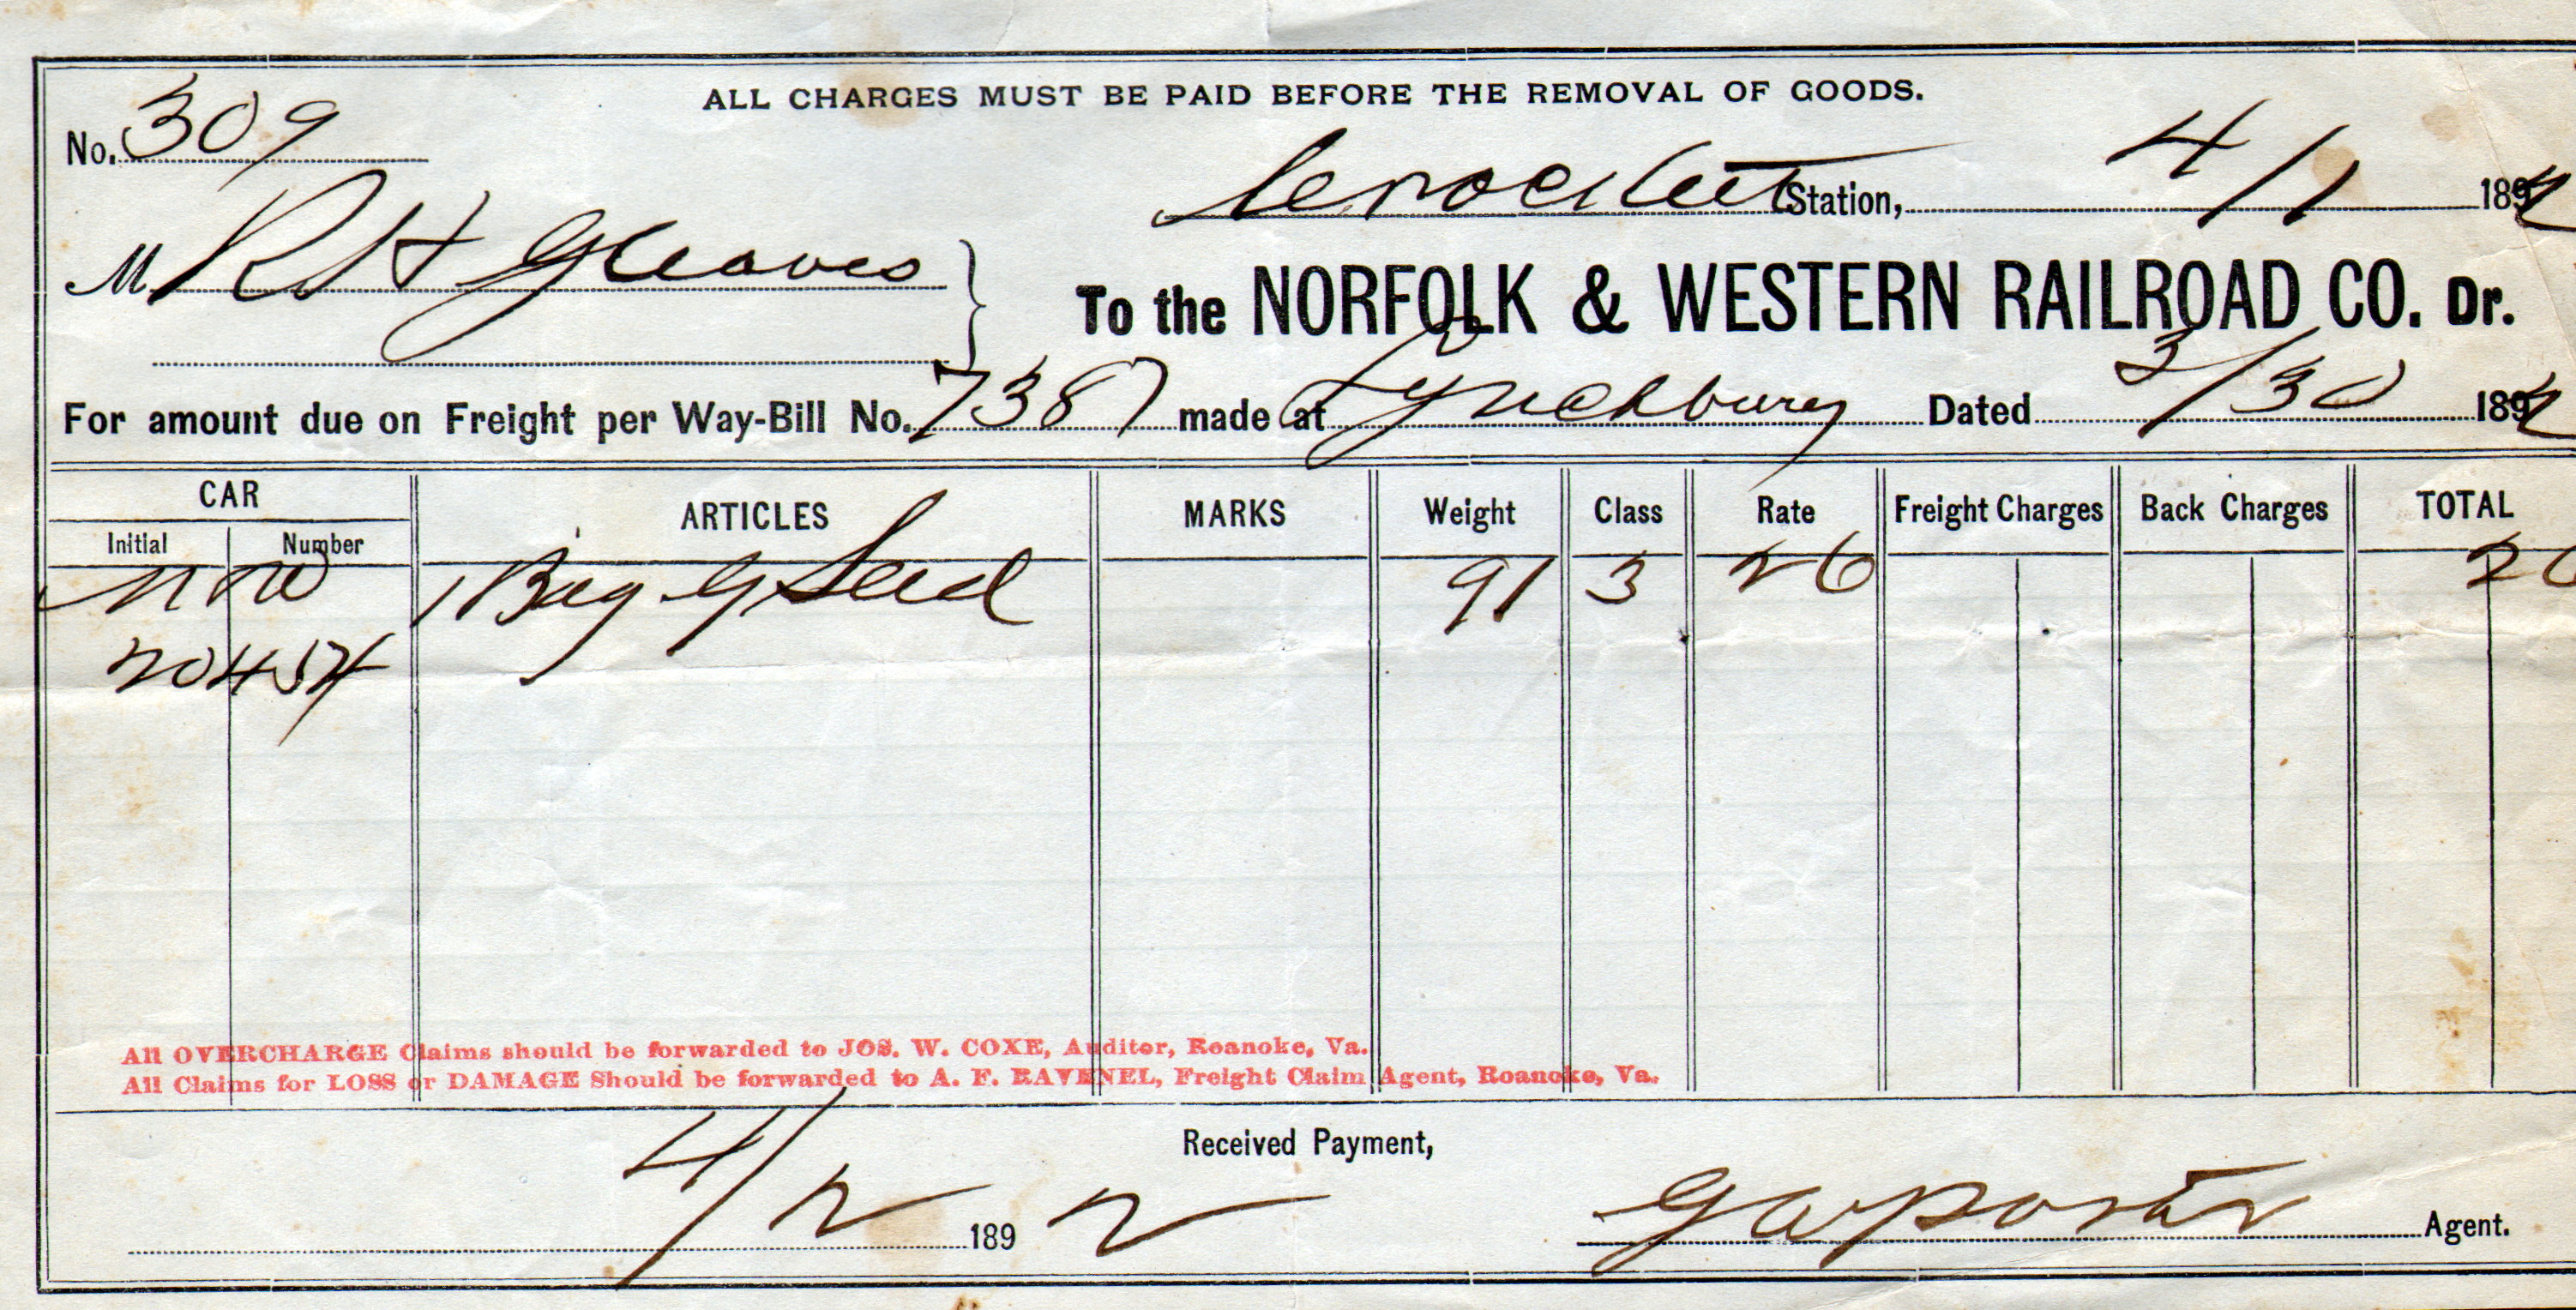 ALL CHARGES MUST BE PAID BEFORE THE REMOVAL OF GOODS.
No. 309
Crockett Station, 4/1 1892
M R H Gleaves
To the NORFOLK & WESTERN RAILROAD CO. Dr.
For amount due on Freight per Way-Bill No. 7387 made at Lynchburg Dated 3/30 1892
CAR ARTICLES MARKS Weight Class Rate Freight Charges Back Charges TOTAL
Initial Number
N W 1 Bag G Seed 91 3 26
20454
All OVERCHARGE Claims should be forwarded to JOS. W. COXE, Auditor, Roanoke, Va.
All Claims for LOSS or DAMAGE Should be forwarded to A. F. RAVENEL, Freight Claim Agent, Roanoke, Va.
Received Payment,
4/2 1892 G W Porter Agent.